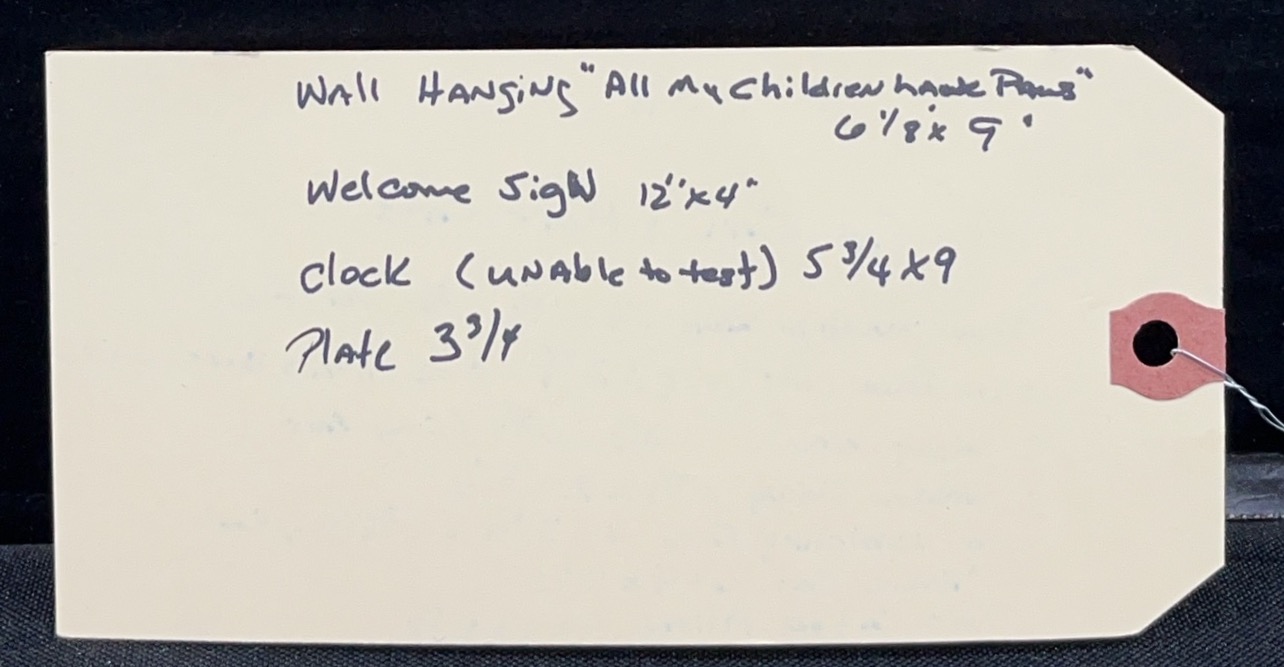 Wall Hanging "All My Children have Paws"
6 1/8 x 9"
Welcome Sign 12" x 4"
Clock (unable to test) 5 3/4 x 9
Plate 3 3/4